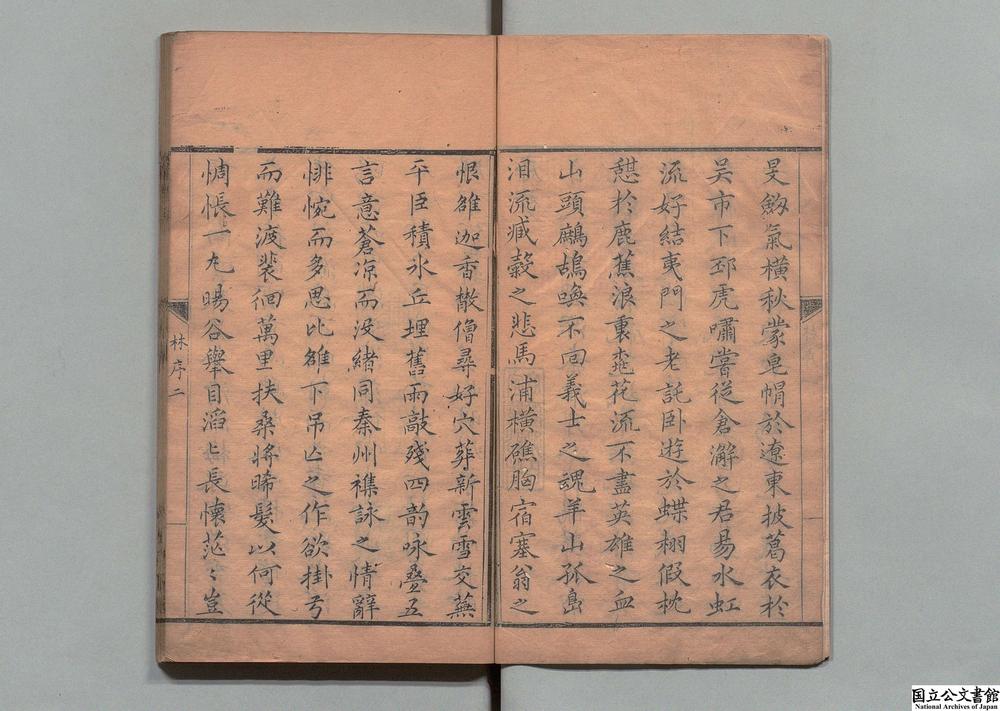 旻釼氣橫秋蒙皂帽於遼東披葛衣於
吳市下邳虎嘯嘗從倉澥之君昜水虹
流好結夷門之老託卧遊於蝶栩假枕
憇於鹿蕉浪裏桃花流不盡英雄之血
山頭鷓鴣喚不回義士之魂羊山孤島
泪流臧穀之悲馬浦橫礁胸宿塞翁之
恨雒迦香散僧尋好穴葬新雲雪交蕪
平臣積氷丘埋舊雨敲殘四韵咏疊五
言意蒼凉而没緒同秦州襍詠之情辭
悱惋而多思比雒下吊亾之作欲掛弓
而難渡裴徊萬里扶桑將晞髮以何從
惆悵一丸暘谷舉目滔〻長懷茫〻豈
林序二
国立公文書館
National Archives of Japan